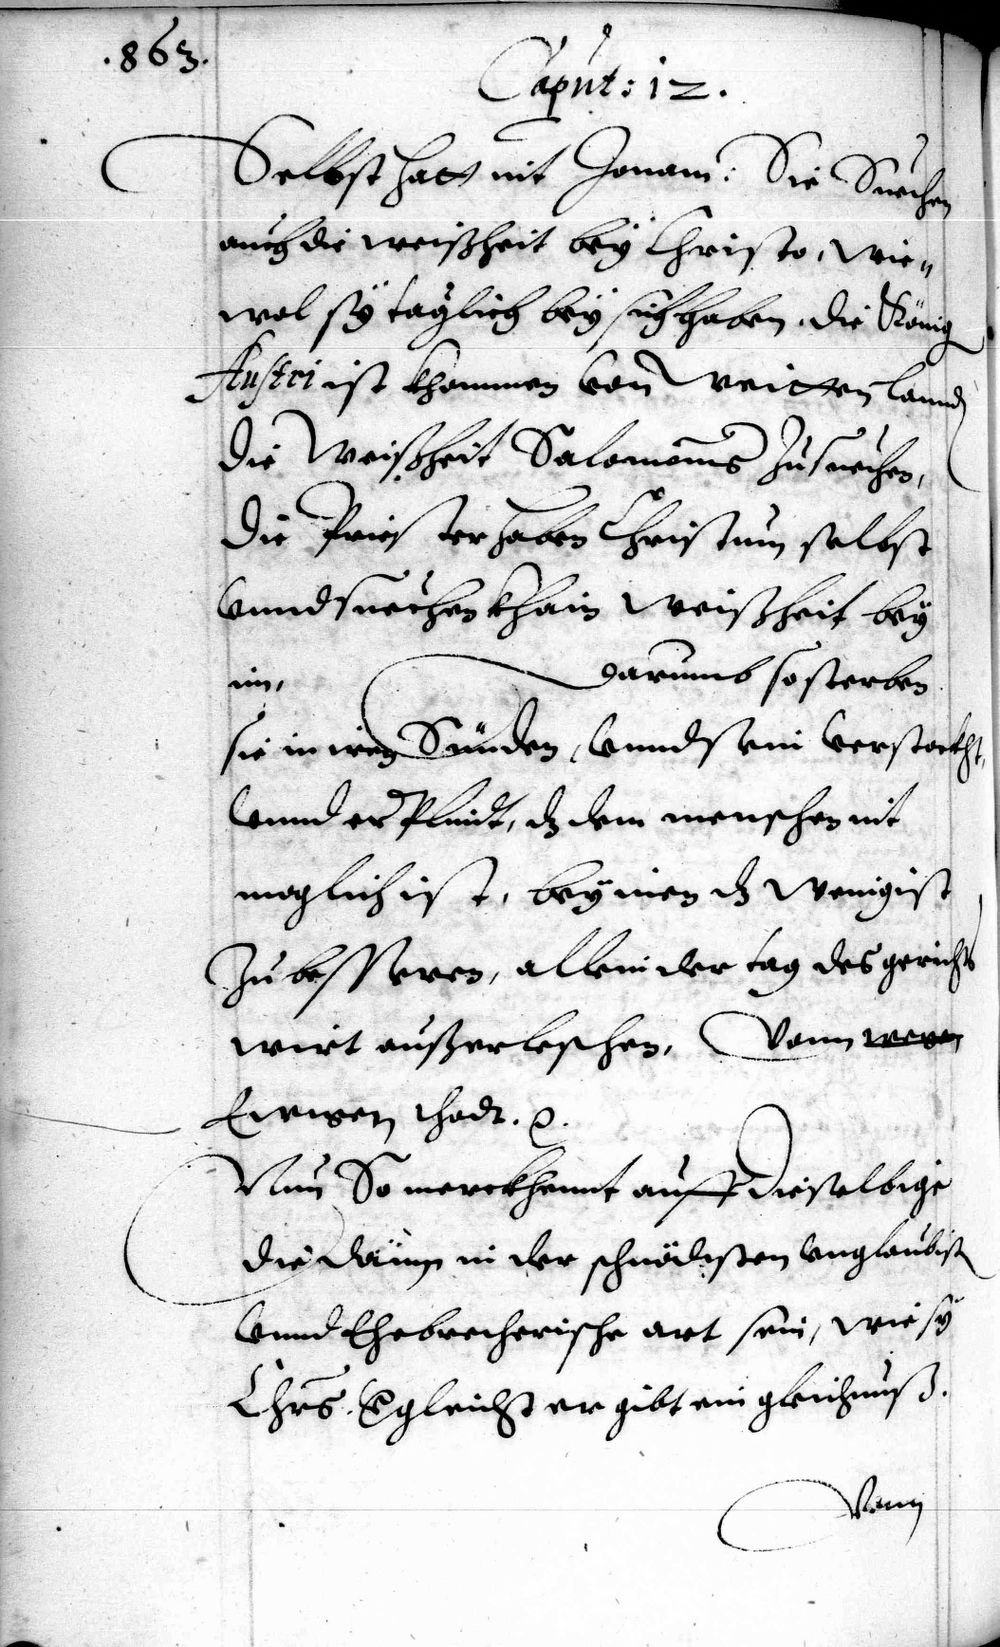 .863.
Caput: 12.
Selbst hatt nit Jonam: Sie Suechen
auch die weißheit bey Christo, wie„
wol sy täglich bey sich haben. die König
Austri ist khommen von weitten lannd
die Weißheit Salomonis zu suechen,
die Priester haben Christum selbst
vnnd suechen khain weißheit bey
im, darumb so sterben
sie in iren Sünden, vnnd sein verstockht,
vnnd erPlindt, dz dem menschen nit
moglich ist, bey inen dz wenigist
zu besseren, allein der tag des gerichts
wirt außerleschen, Vom
Ewigen thodt. &.
Nun So merckhennt auff dieselbige
die dann in der schnödisten vnglaubist
vnnd Ehebrecherische art sein, wie sy
Chrs. Vergleicht er gibt ein gleichnuß.
Vonn